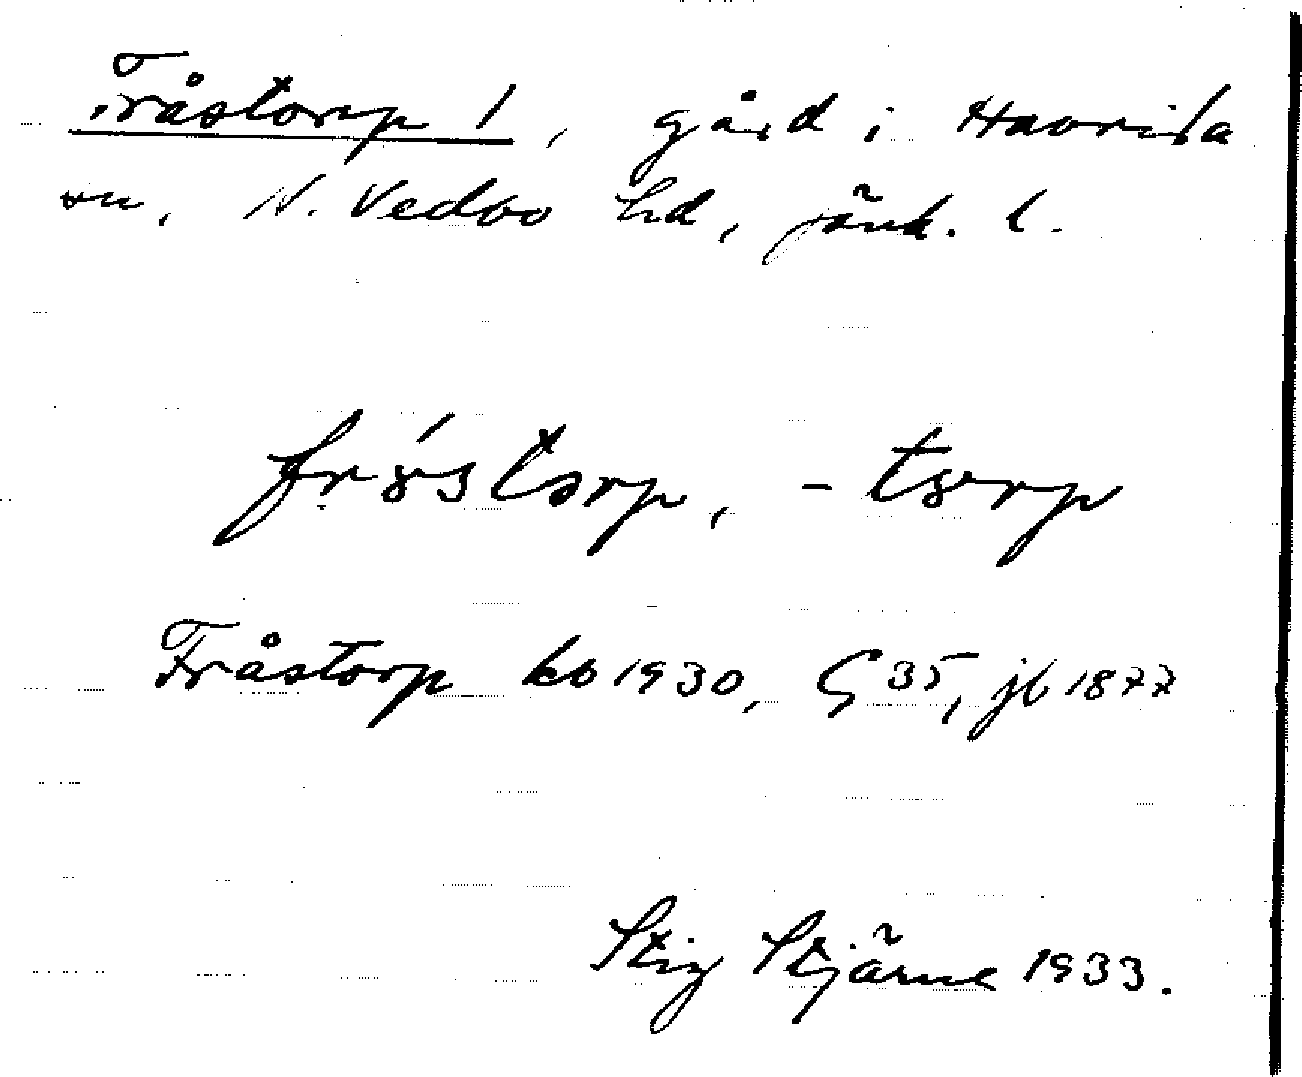 Fråstorp 1, gård i Haurida
sn, N. Vedbo hd, Jönk. l.
frɤ́storp, -tɤrp
Fråstorp kb 1930, G 35, jb 1877
Stig Stjärne 1933.